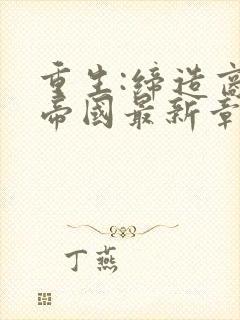 重生:缔造商
帝國最新章
丁燕